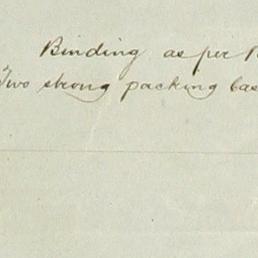 Binding as per
Two strong packing